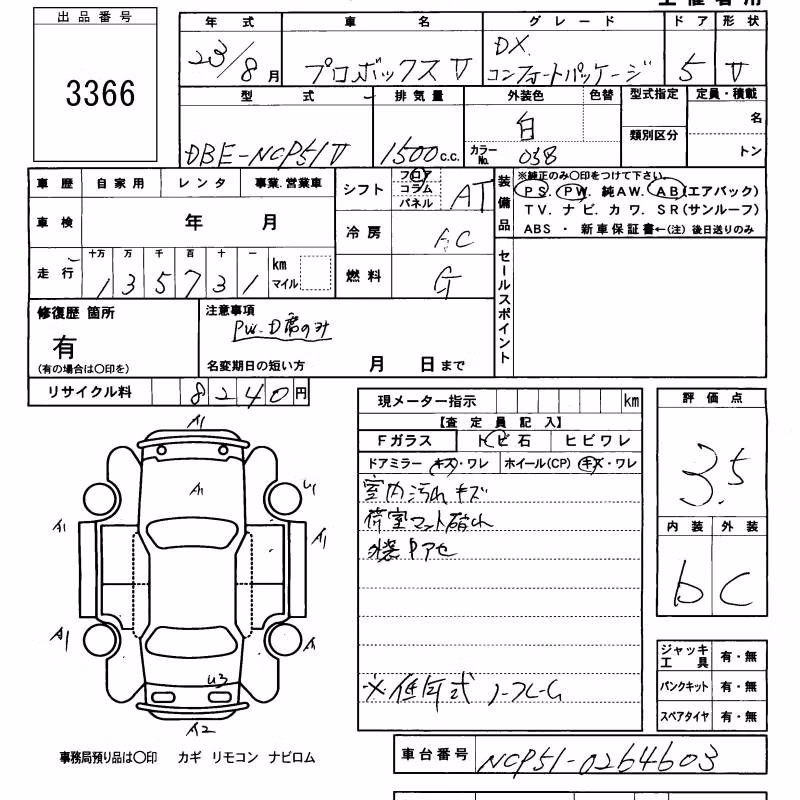 出品番号
3366
年式 車名 グレード ドア 形状
23/8月 プロボックスV DX. コンフォートパッケージ 5 V
型式 排気量 外装色 色替 型式指定 定員・積載
DBE-NCP51V 1500c.c. 白 カラーNo. 058 類別区分 名 トン
車歴 自家用 レンタ 事業.営業車
車検 年 月
走行 十万 万 千 百 十 一 km マイル
135731
シフト フロア コラム パネル AT
冷房 AC
燃料 G
装備品 ※純正のみ〇印をつけて下さい。
PS. PW. 純AW. AB(エアバック)
TV. ナビ. カワ. SR(サンルーフ)
ABS ・ 新車保証書←(注) 後日送りのみ
セールスポイント
修復歴 箇所
有
(有の場合は〇印を)
注意事項
PW.D席のみ
名変期日の短い方 月 日まで
リサイクル料 8240円
現メーター指示 km
【査定員記入】
Fガラス トビ石 ヒビワレ
ドアミラー (キズ)・ワレ ホイール(CP) キズ・ワレ
室内汚れキズ
荷室マット破れ
※低年式
評価点
3.5
内装 外装
b C
A1
A1 U1
A1 A1
A1 A
U3
A2
ジャッキ工具 有・無
パンクキット 有・無
スペアタイヤ 有・無
事務局預り品は〇印 カギ リモコン ナビロム
車台番号 NCP51-0264603